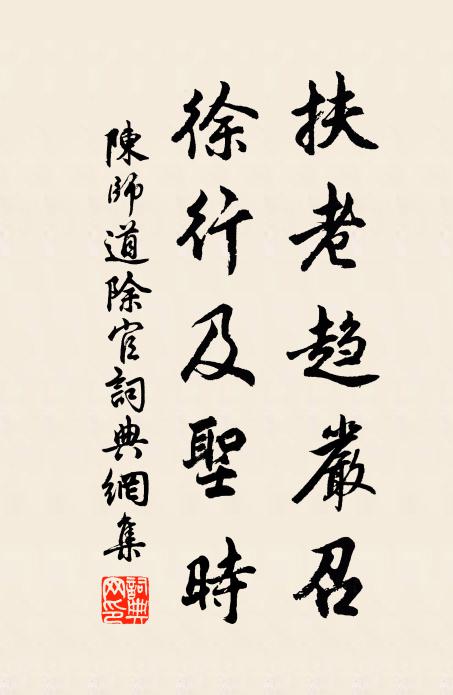 扶老趋嚴召
徐行及聖時
陳師道除官詞典網集
詞典网印